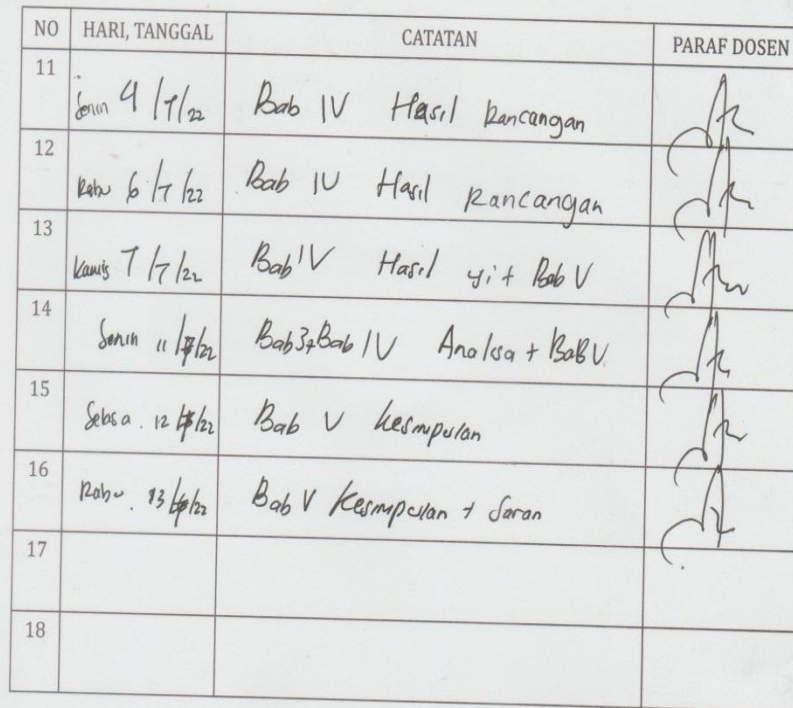 NO HARI, TANGGAL CATATAN PARAF DOSEN
11 Senin 4/7/22 Bab IV Hasil Rancangan
12 Rabu 6/7/22 Bab IV Hasil Rancangan
13 Kamis 7/7/22 Bab IV Hasil + Bab V
14 Senin 11/7/22 Bab 3 + Bab IV Analisa + BaB V
15 Selasa. 12/7/22 Bab V Kesimpulan
16 Rabu. 13/7/22 Bab V Kesimpulan + Saran
17
18